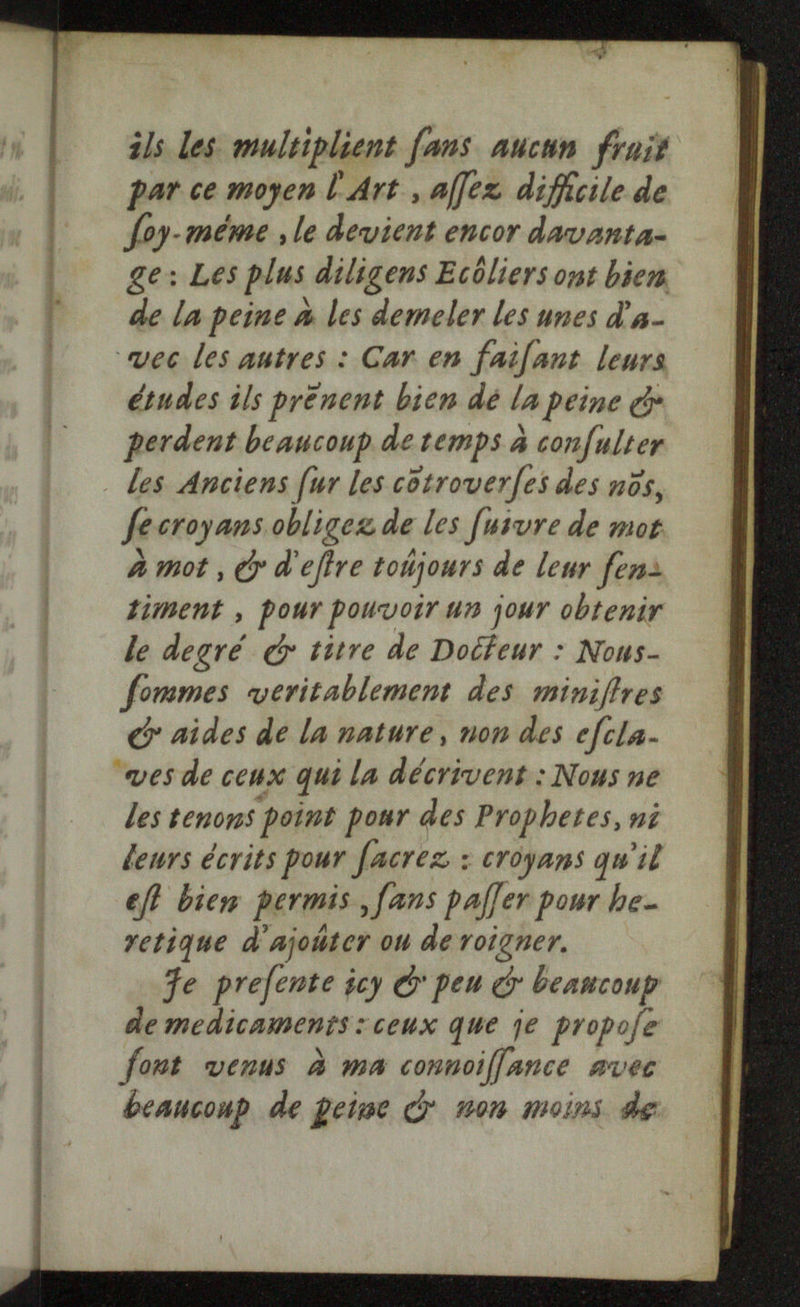 ils les multiplient ſans aucun fruit
par ce moyen l'Art , aſſez difficile de
ſoy-méme , le devient encor davanta-
ge : Les plus diligens Ecôliers ont bien
de la peine à les demeler les unes d'a-
vec les autres : Car en faiſant leurs
études ils prēnent bien de la peine &
perdent beaucoup de temps à conſulter
les Anciens ſur les cōtroverſes des nōs,
ſe croyans obligez de les ſuivre de mot
à mot , & d'eſtre toûjours de leur ſen-
timent , pour pouvoir un jour obtenir
le degré & titre de Docteur : Nous-
ſommes veritablement des miniſtres
& aides de la nature, non des eſcla-
ves de ceux qui la décrivent : Nous ne
les tenons point pour des Prophetes, ni
leurs écrits pour ſacrez : croyans qu'il
eſt bien permis , ſans paſſer pour he-
retique d'ajoûter ou de roigner.
Je preſente icy & peu & beaucoup
de medicaments : ceux que je propoſe
ſont venus à ma connoiſſance avec
beaucoup de peine & non moins de